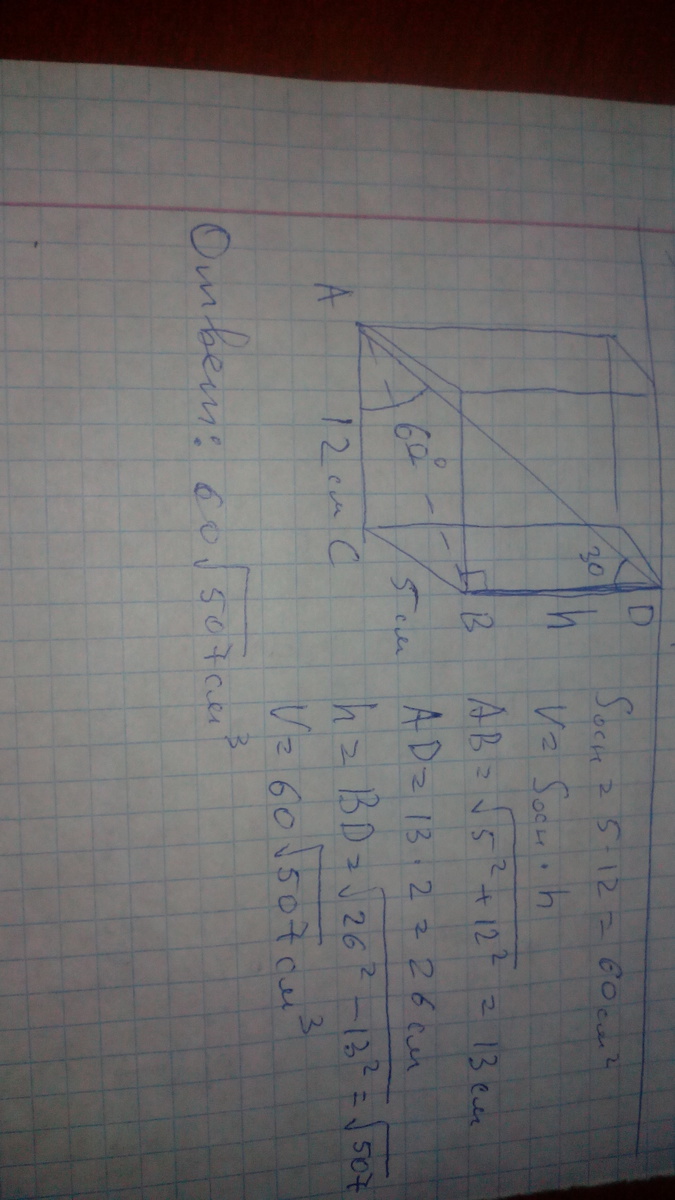 A
12 см
C
5 см
60°
B
h
30
D
Sосн = 5·12 = 60 см²
V = Sосн · h
AB = √5² + 12² = 13 см
AD = 13 · 2 = 26 см
h = BD = √26² − 13² = √507
V = 60√507 см³
Ответ: 60√507 см³